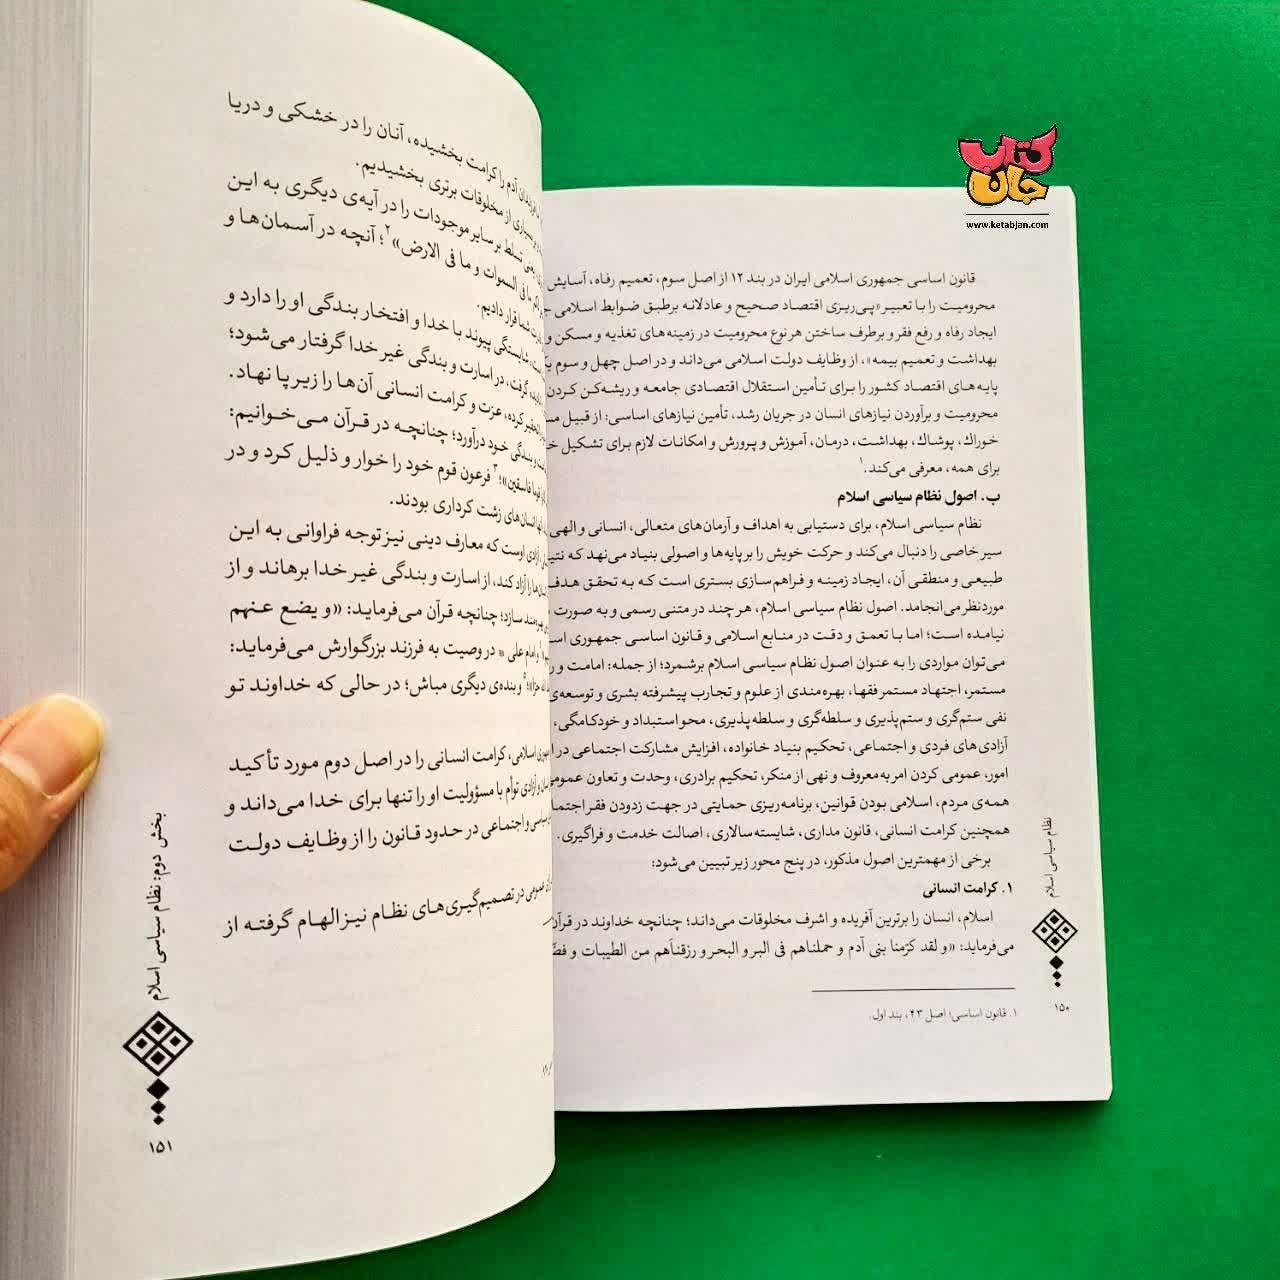 کتاب
جان
www.ketabjan.com
قانون اساسی جمهوری اسلامی ایران در بند ۱۲ از اصل سوم، تعمیم رفاه، آسایش
محرومیت را با تعبیر «پی‌ریزی اقتصاد صحیح و عادلانه برطبق ضوابط اسلامی
ایجاد رفاه و رفع فقر و برطرف ساختن هر نوع محرومیت در زمینه‌های تغذیه و مسکن و
بهداشت و تعمیم بیمه»، از وظایف دولت اسلامی می‌داند و در اصل چهل و سوم
پایه‌های اقتصاد کشور را برای تأمین استقلال اقتصادی جامعه و ریشه‌کن کردن
محرومیت و برآوردن نیازهای انسان در جریان رشد، تأمین نیازهای اساسی: از قبیل
خوراك، پوشاك، بهداشت، درمان، آموزش و پرورش و امکانات لازم برای تشکیل
برای همه، معرفی می‌کند.۱
ب. اصول نظام سیاسی اسلام
نظام سیاسی اسلام، برای دستیابی به اهداف و آرمان‌های متعالی، انسانی و الهی
سیر خاصی را دنبال می‌کند و حرکت خویش را بر پایه‌ها و اصولی بنیاد می‌نهد که
طبیعی و منطقی آن، ایجاد زمینه و فراهم‌سازی بستری است که به تحقق هدف
موردنظر می‌انجامد. اصول نظام سیاسی اسلام، هر چند در متنی رسمی و به صورت
نیامده است؛ اما با تعمق و دقت در منابع اسلامی و قانون اساسی جمهوری
می‌توان مواردی را به عنوان اصول نظام سیاسی اسلام برشمرد؛ از جمله: امامت و
مستمر، اجتهاد مستمر فقها، بهره‌مندی از علوم و تجارب پیشرفته بشری و توسعه‌ی
نفی ستم‌گری و ستم‌پذیری و سلطه‌گری و سلطه‌پذیری، محو استبداد و خودکامگی،
آزادی‌های فردی و اجتماعی، تحکیم بنیاد خانواده، افزایش مشارکت اجتماعی در
امور، عمومی کردن امر به معروف و نهی از منکر، تحکیم برادری، وحدت و تعاون
همه‌ی مردم، اسلامی بودن قوانین، برنامه‌ریزی حمایتی در جهت زدودن فقر
همچنین کرامت انسانی، قانون مداری، شایسته‌سالاری، اصالت خدمت و فراگیری.
برخی از مهمترین اصول مذکور، در پنج محور زیر تبیین می‌شود:
۱. کرامت انسانی
اسلام، انسان را برترین آفریده و اشرف مخلوقات می‌داند؛ چنانچه خداوند در قرآن
می‌فرماید: «و لقد کرّمنا بنی آدم و حملناهم فی البر و البحر و رزقناهم من الطیبات و
۱. قانون اساسی؛ اصل ۴۳، بند اول.
نظام سیاسی اسلام
۱۵۰
آدم را کرامت بخشیده، آنان را در خشکی و دریا
از مخلوقات برتری بخشیدیم.
تسلط بر سایر موجودات را در آیه‌ی دیگری به این
ما فی السموات و ما فی الارض»۲؛ آنچه در آسمان‌ها و
شما قرار دادیم.
شایستگی پیوند با خدا و افتخار بندگی او را دارد و
گرفت، در اسارت و بندگی غیر خدا گرفتار می‌شود؛
تحقیر کرده، عزت و کرامت انسانی آن‌ها را زیر پا نهاد.
و بندگی خود درآورد؛ چنانچه در قرآن می‌خوانیم:
قوما فاسقین»؛۳ فرعون قوم خود را خوار و ذلیل کرد و در
انسان‌های زشت کرداری بودند.
آزادی اوست که معارف دینی نیز توجه فراوانی به این
را آزاد کند، از اسارت و بندگی غیر خدا برهاند و از
بهره‌مند سازد؛ چنانچه قرآن می‌فرماید: «و یضع عنهم
و امام علی در وصیت به فرزند بزرگوارش می‌فرماید:
و بنده‌ی دیگری مباش؛ در حالی که خداوند تو
اسلامی، کرامت انسانی را در اصل دوم مورد تأکید
و آزادی توأم با مسؤولیت او را تنها برای خدا می‌داند و
سیاسی و اجتماعی در حدود قانون را از وظایف دولت
عمومی در تصمیم‌گیری‌های نظام نیز الهام گرفته از
بخش دوم: نظام سیاسی اسلام
۱۵۱